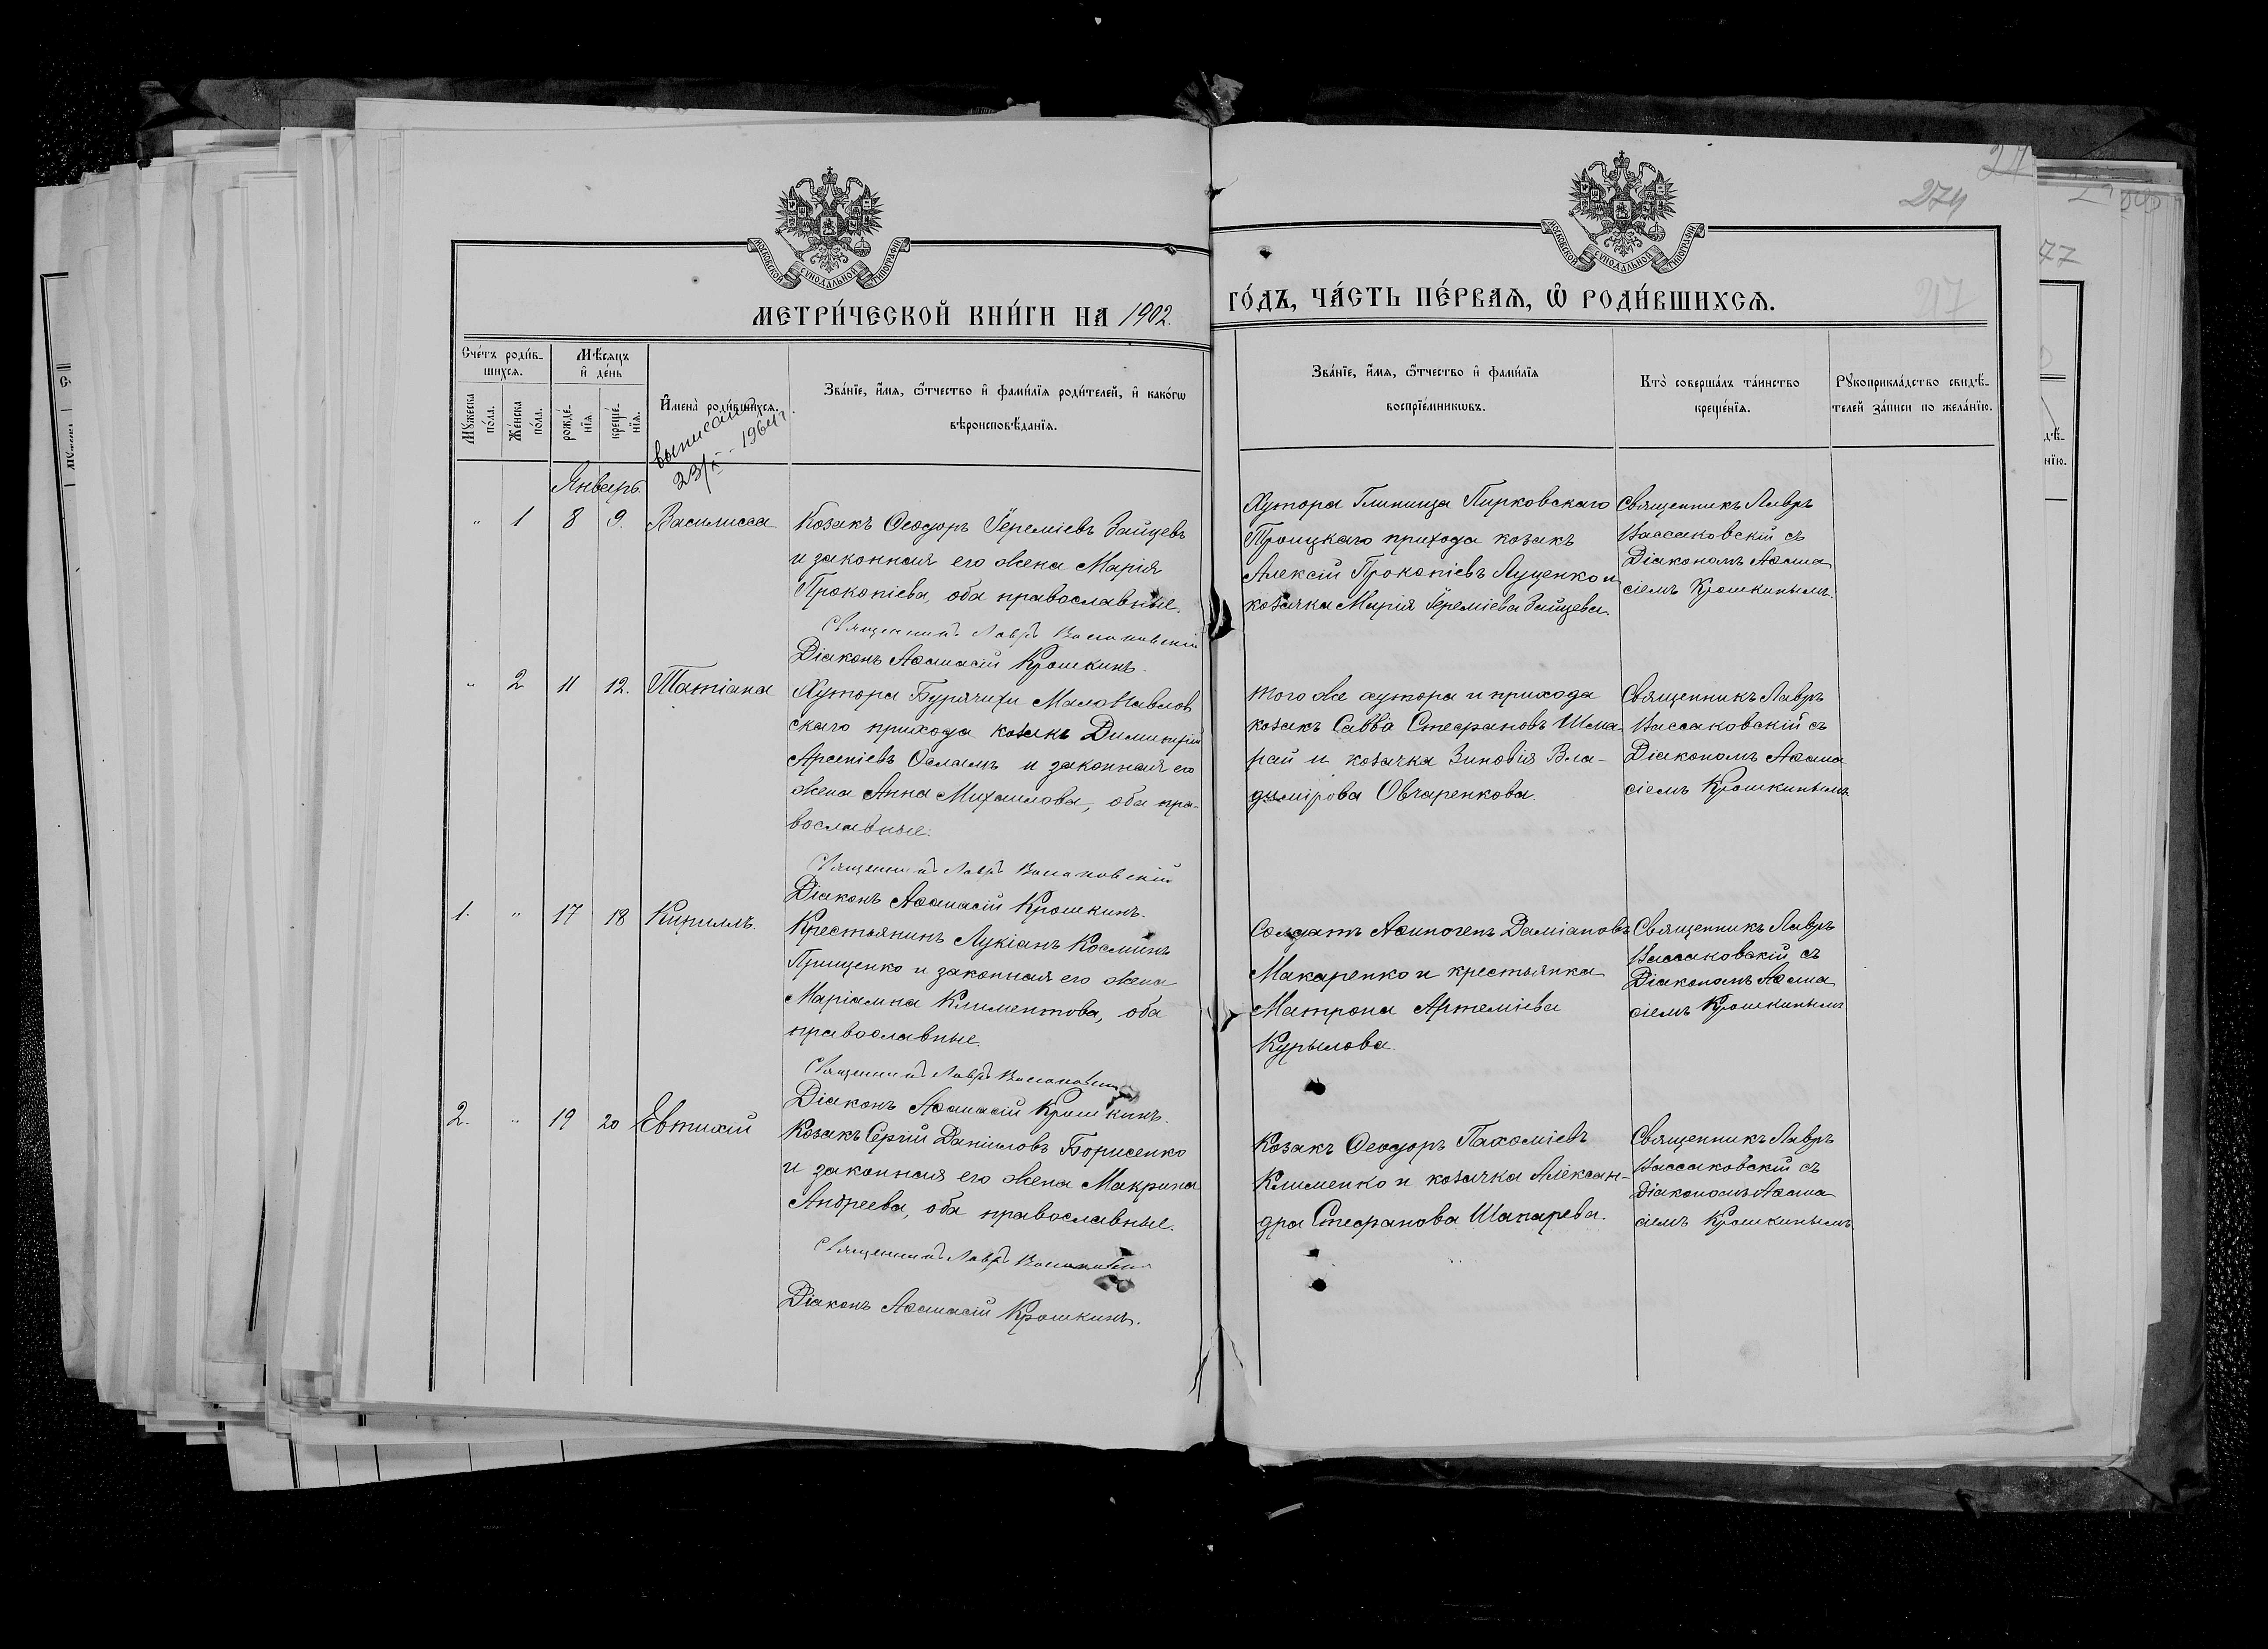 274
МОСКОВСКОЙ СѴНОДАЛЬНОЙ ТИПОГРАФІИ
МОСКОВСКОЙ СѴНОДАЛЬНОЙ ТИПОГРАФІИ
МЕТРИ́ЧЕСКОЙ КНИ́ГИ НА 1902. ГО́ДЪ, ЧА́СТЬ ПЕ́РВАѦ, Ѿ РОДИ́ВШИХСѦ.
217
Сче́тъ роди́в-
шихсѧ.
Мꙋжеска по́ла.
Же́нска по́ла.
Мѣ́сѧцъ
и҆ де́нь
рожде́-
нїѧ
креще́-
нїѧ.
И҆мена̀ роди́вшихсѧ.
Зва́нїе, и҆́мѧ, ѻ҆́тчество и҆ фами́лїѧ роди́телей, и҆ како́гѡ
вѣроисповѣ́данїѧ.
Зва́нїе, и҆́мѧ, ѻ҆́тчество и҆ фами́лїѧ
воспрїе́мникѡвъ.
Кто̀ соверша́лъ та́инство
креще́нїѧ.
Рꙋкоприкла́дство свидѣ́-
телей за́писи по жела́нїю.
выписано
23/X - 1964 г.
Январь.
" 1 8 9. Василисса
Козакъ Ѳеодоръ Іереміевъ Зайцевъ
и законная его жена Марія
Прокопіева, оба православные.
Священникъ Лавръ Вассаковскій
Діаконъ Аѳанасій Крошкинъ.
Хутора Глинища Пирковскаго
Троицкаго прихода козакъ
Алексій Прокопіевъ Луценко и
козачка Марія Іереміева Зайцева.
Священникъ Лавръ
Вассаковскій съ
Діакономъ Аѳана
сіемъ Крошкинымъ.
" 2 11 12. Татіана
Хутора Бурячихи Малопавлов
скаго прихода козакъ Димитрій
Арсеніевъ Осламъ и законная его
жена Анна Михаилова, оба пра-
вославные.
Священникъ Лавръ Вассаковскій
Діаконъ Аѳанасій Крошкинъ.
того же хутора и прихода
козакъ Савва Стефановъ Шма-
рай и козачка Зиновія Вла-
димірова Овчаренкова.
Священникъ Лавръ
Вассаковскій съ
Діакономъ Аѳана
сіемъ Крошкинымъ
1. " 17 18 Кириллъ.
Крестьянинъ Лукіанъ Косминъ
Прищенко и законная его жена
Маріамна Климентова, оба
православные.
Священникъ Лавръ Вассаковскій
Діаконъ Аѳанасій Крошкинъ.
Солдатъ Аѳиногенъ Даміановъ
Макаренко и крестьянка
Матрона Артеміева
Курылова.
Священникъ Лавръ
Вассаковскій съ
Діакономъ Аѳана
сіемъ Крошкинымъ
2. " 19 20 Евтихій
Козакъ Сергій Даніиловъ Борисенко
и законная его жена Макрина
Андреева, оба православные.
Священникъ Лавръ Вассаковскій
Діаконъ Аѳанасій Крошкинъ.
Козакъ Ѳеодоръ Пахоміевъ
Клименко и козачка Алексан-
дра Стефанова Шапарева.
Священникъ Лавръ
Вассаковскій съ
Діакономъ Аѳана
сіемъ Крошкинымъ